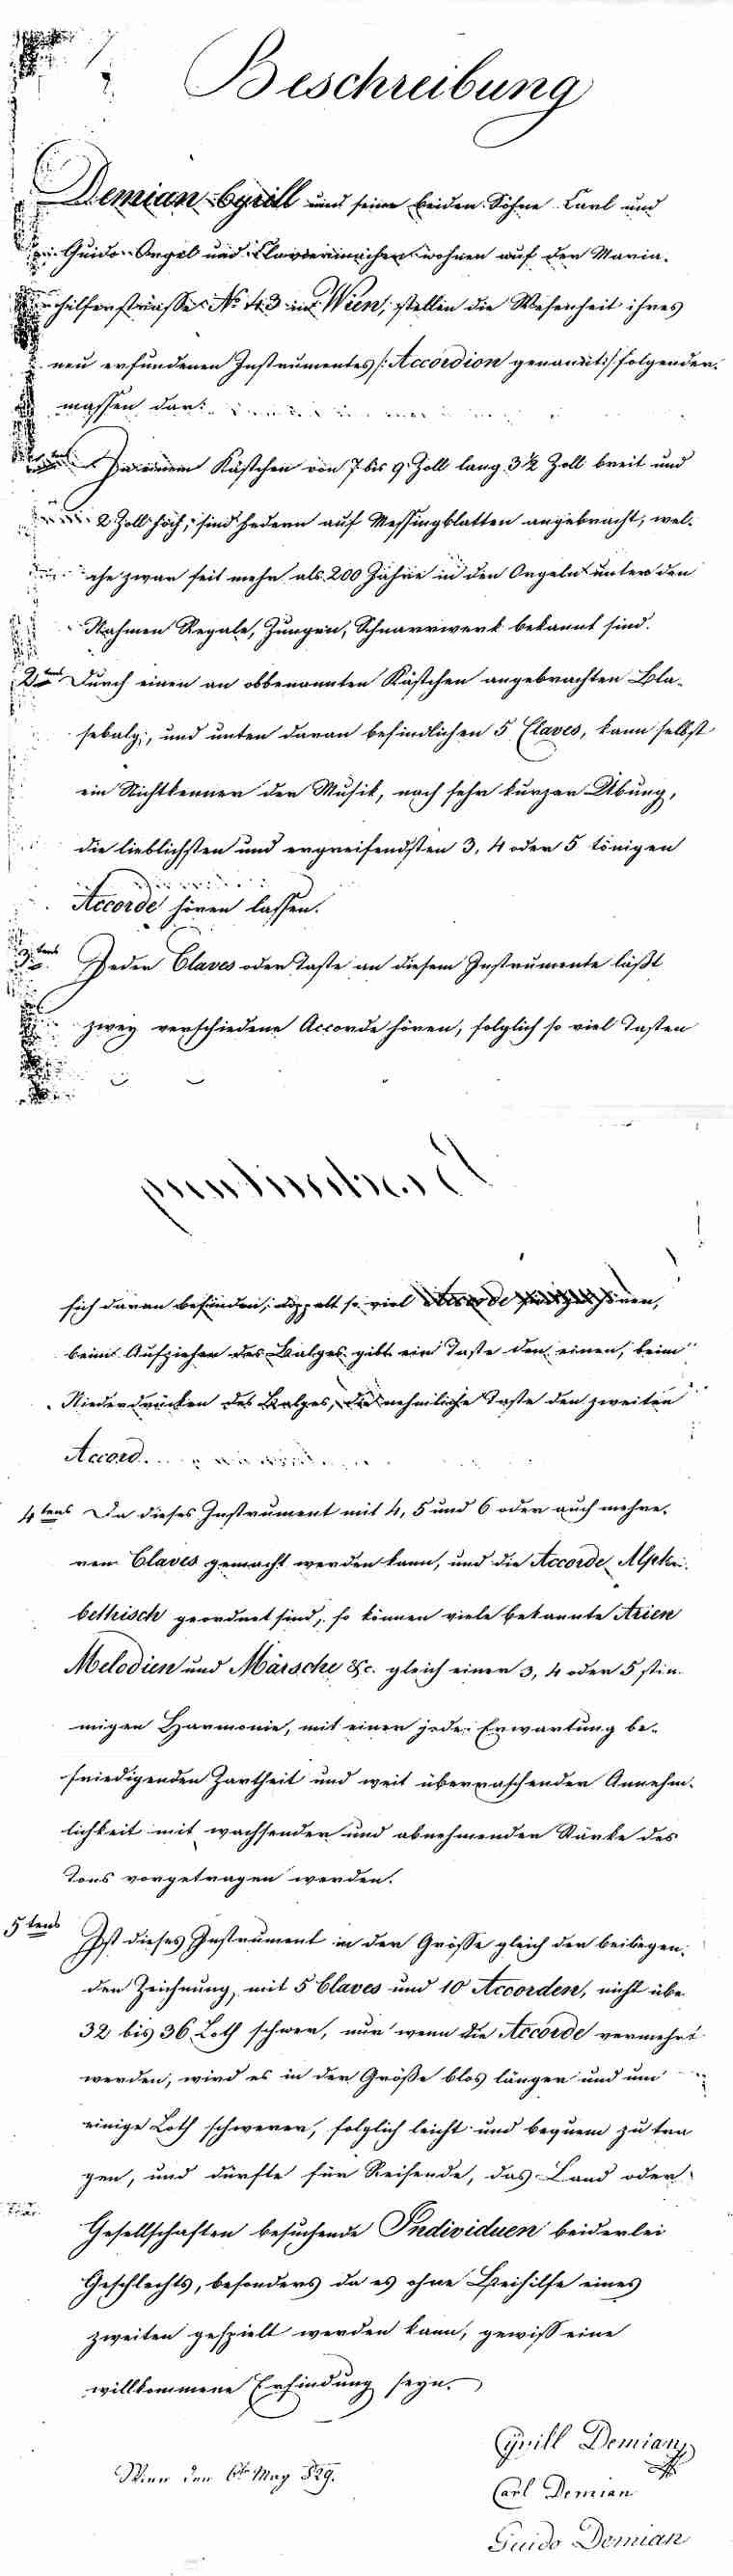 Beschreibung
Demian Cyrill und seine beiden Söhne Carl und
Guido Orgel und Claviermacher wohnen auf der Maria-
hilferstrasse No 43 in Wien, stellen die Wesenheit ihres
neu erfundenen Instrumentes /: Accordion genannt :/ folgender-
massen dar:
In einem Kästchen von 7 bis 9 Zoll lang 3½ Zoll breit und
2 Zoll hoch, sind Federn auf Messingblatten angebracht, wel-
che zwar seit mehr als 200 Jahre in den Orgeln unter den
Nahmen Regale, Zungen, Schnarrwerk bekannt sind.
2tens Durch einen an obbenannten Kästchen angebrachten Bla-
sebalg, und unten daran befindlichen 5 Claves, kann selbst
ein Nichtkenner der Musik, nach sehr kurzer Übung,
die lieblichsten und ergreifendsten 3, 4 oder 5 tönigen
Accorde hören lassen.
3tens Jeder Claves oder Taste an diesem Instrumente läßt
zwey verschiedene Accorde hören, folglich so viel Tasten
sich daran befinden, doppelt so viel Accorde hören,
beim Aufziehen des Balges gibt ein Taste den einen, beim
Niederdrücken des Balges, die nehmliche Taste den zweiten
Accord.
4tens Da dieses Instrument mit 4, 5 und 6 oder auch mehre-
ren Claves gemacht werden kann, und die Accorde Alpha-
bethisch geordnet sind, so können viele bekannte Arien
Melodien und Märsche &c. gleich einer 3, 4 oder 5 stim-
migen Harmonie, mit einer jede Erwartung be-
friedigenden Zartheit und weit überraschender Annehm-
lichkeit mit wachsender und abnehmender Stärke des
Tons vorgetragen werden.
5tens Ist dieses Instrument in der Grösse gleich der beiliegen-
den Zeichnung, mit 5 Claves und 10 Accorden, nicht übe
32 bis 36 Loth schwer, nur wenn die Accorde vermehrt
werden, wird es in der Größe blos länger und um
einige Loth schwerer, folglich leicht und bequem zu tra
gen, und dürfte für Reisende, das Land oder
Gesellschaften besuchende Individuen beiderlei
Geschlechts, besonders da es ohne Beihilfe eines
zweiten gespielt werden kann, gewiß eine
willkommene Erfindung seyn.
Cyrill Demian
Wien den 6ten May 829.
Carl Demian
Guido Demian